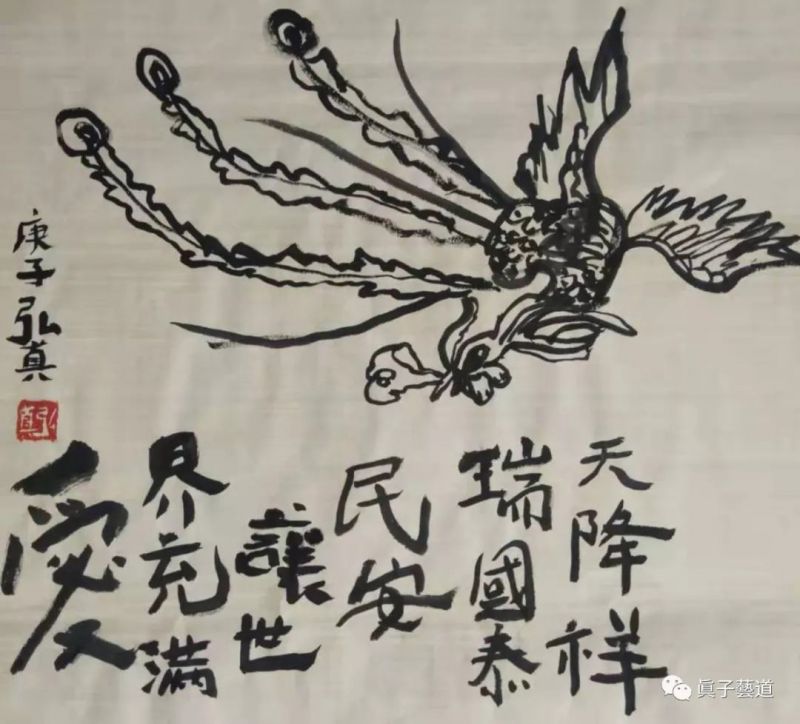 天降祥
瑞國泰
民安
讓世
界充滿
愛
庚子弘真
弘真
眞子藝道